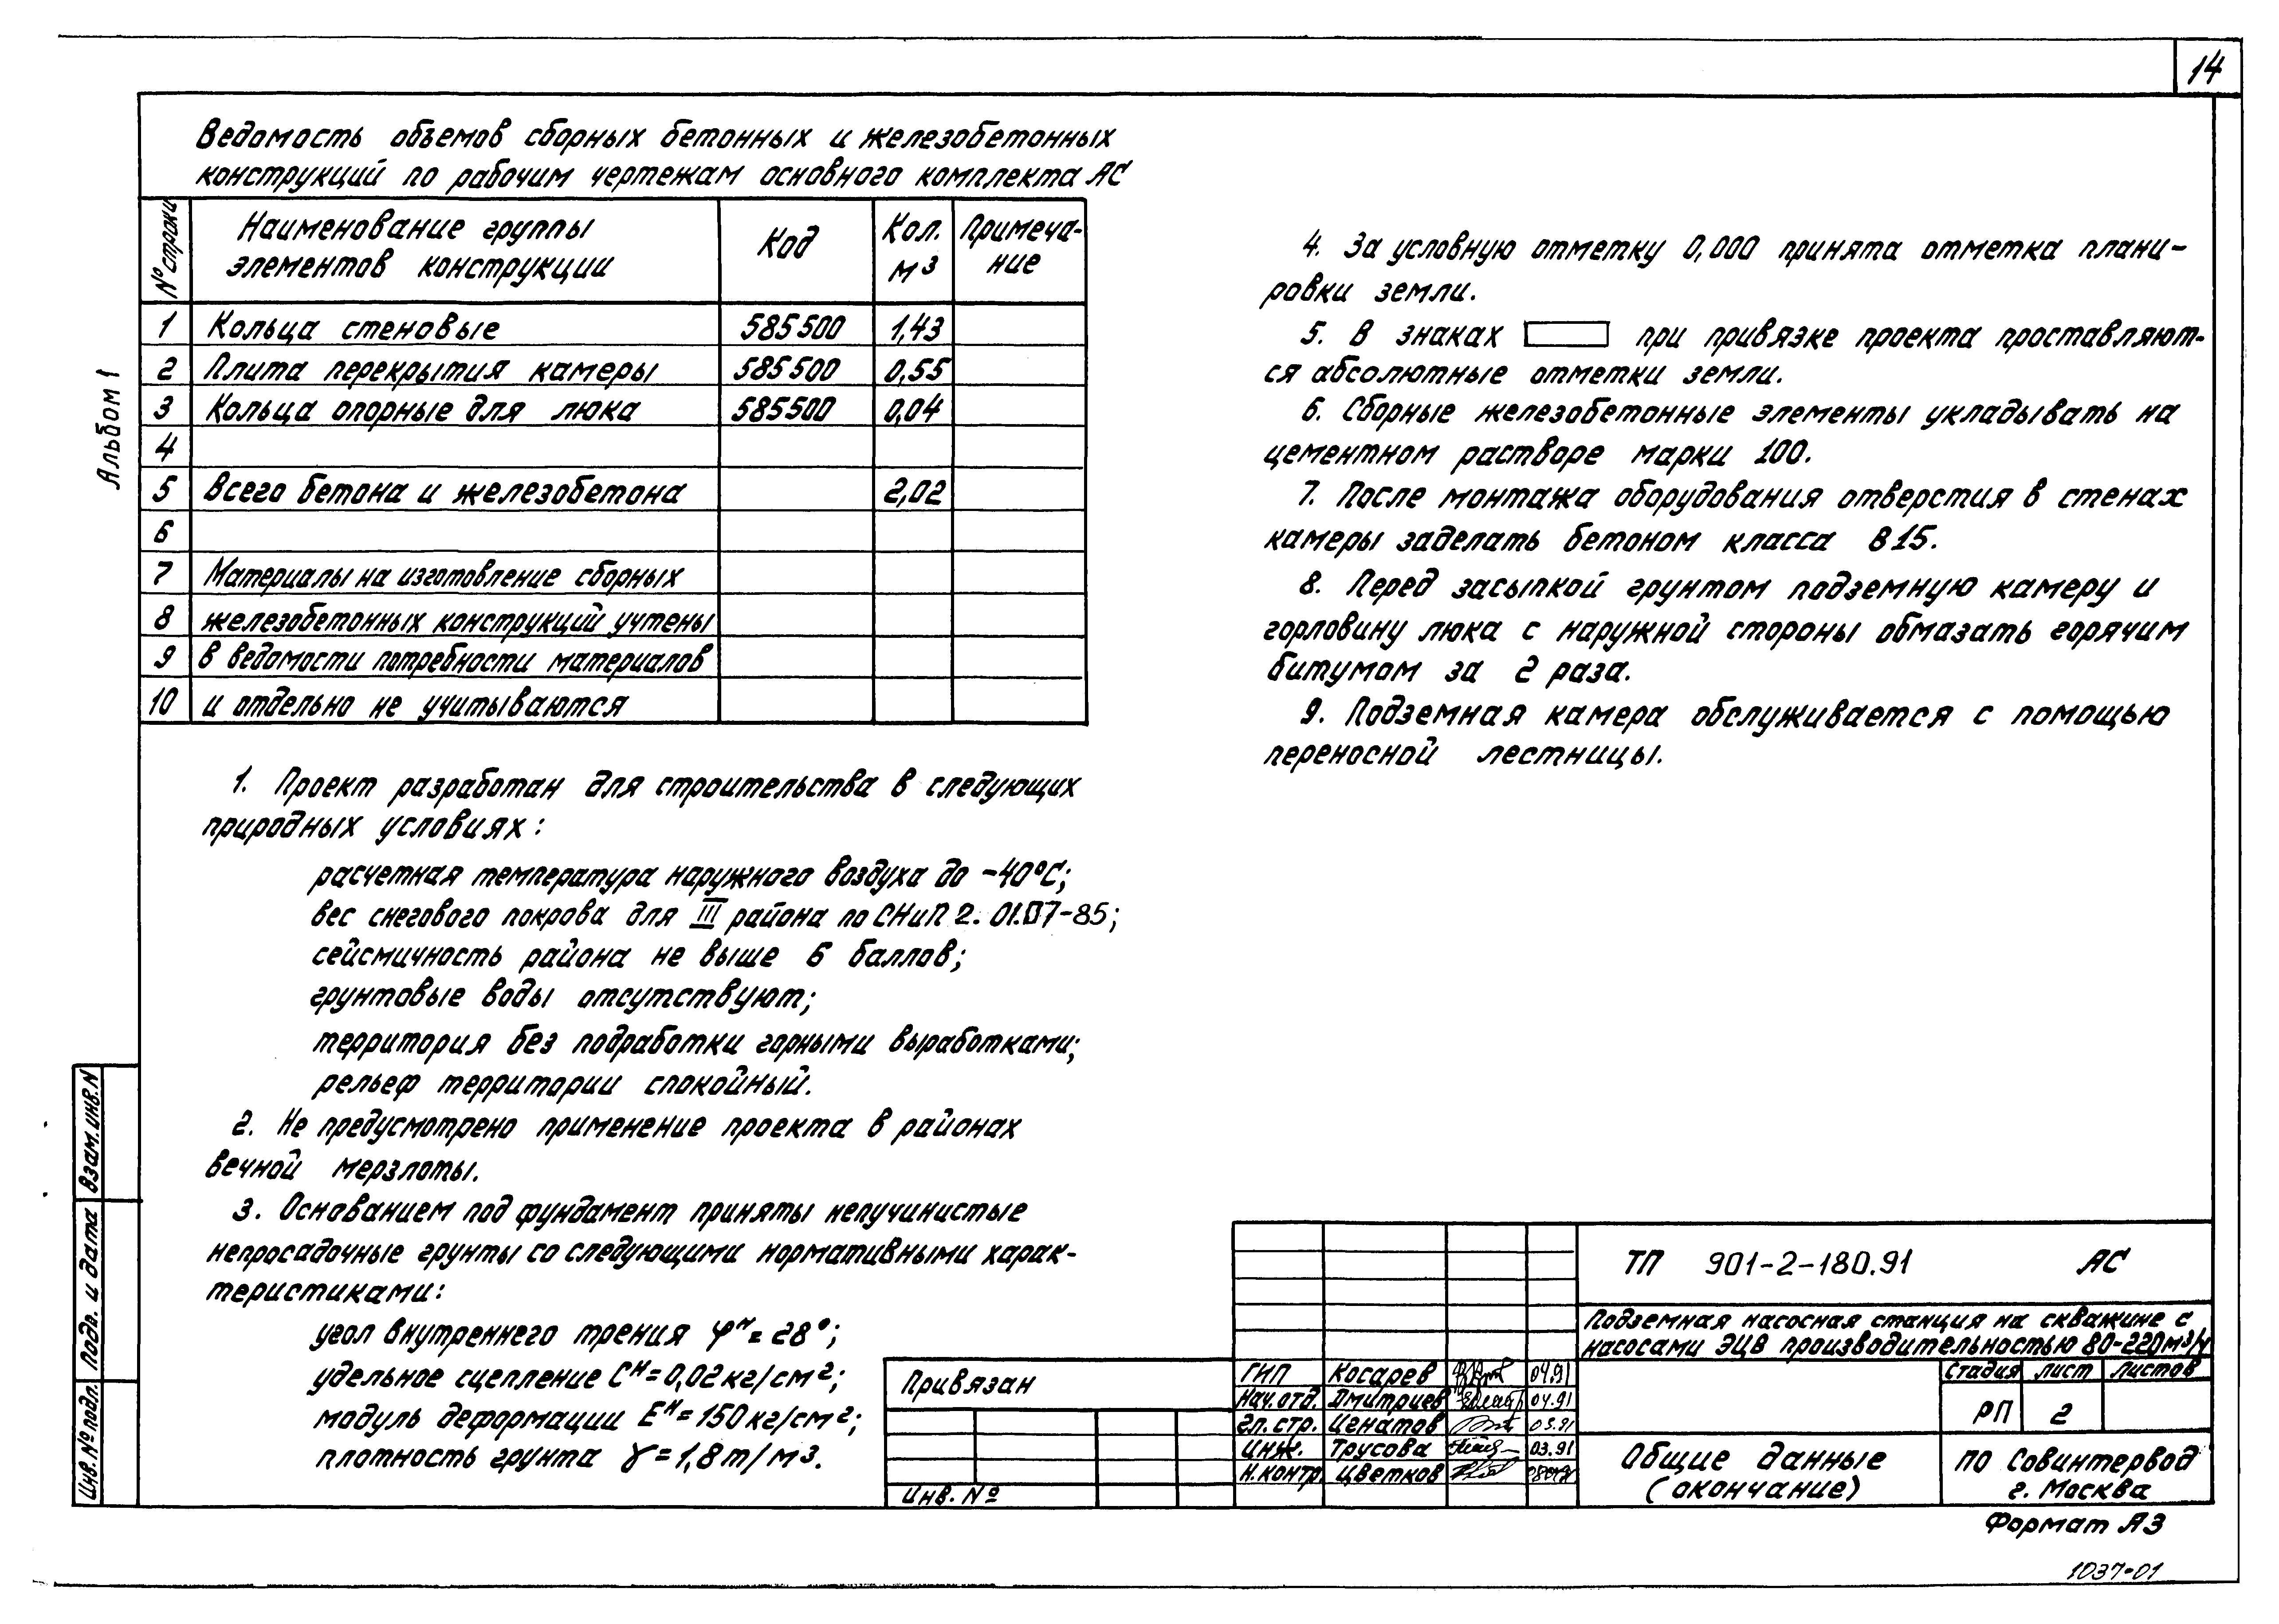 14
Ведомость объемов сборных бетонных и железобетонных
конструкций по рабочим чертежам основного комплекта АС
№ строки
Наименование группы
элементов конструкции
Код
Кол.
м3
Примеча-
ние
1 Кольца стеновые 585500 1,43
2 Плита перекрытия камеры 585500 0,55
3 Кольца опорные для люка 585500 0,04
4
5 Всего бетона и железобетона 2,02
6
7 Материалы на изготовление сборных
8 железобетонных конструкций учтены
9 в ведомости потребности материалов
10 и отдельно не учитываются
Альбом 1
1. Проект разработан для строительства в следующих
природных условиях:
расчетная температура наружного воздуха до -40°С;
вес снегового покрова для III района по СНиП 2.01.07-85;
сейсмичность района не выше 6 баллов;
грунтовые воды отсутствуют;
территория без подработки горными выработками;
рельеф территории спокойный.
2. Не предусмотрено применение проекта в районах
вечной мерзлоты.
3. Основанием под фундамент приняты непучинистые
непросадочные грунты со следующими нормативными харак-
теристиками:
угол внутреннего трения φн=28°;
удельное сцепление Сн=0,02кг/см2;
модуль деформации Ен=150кг/см2;
плотность грунта γ=1,8т/м3.
4. За условную отметку 0,000 принята отметка плани-
ровки земли.
5. В знаках при привязке проекта проставляют-
ся абсолютные отметки земли.
6. Сборные железобетонные элементы укладывать на
цементном растворе марки 100.
7. После монтажа оборудования отверстия в стенах
камеры заделать бетоном класса В15.
8. Перед засыпкой грунтом подземную камеру и
горловину люка с наружной стороны обмазать горячим
битумом за 2 раза.
9. Подземная камера обслуживается с помощью
переносной лестницы.
Взам. инв. N
Подп. и дата
Инв. № подл.
Привязан
Инв. №
ГИП Косарев 04.91
Нач. отд. Дмитриев 04.91
Гл. стр. Ценатов 03.91
Инж. Трусова 03.91
Н. контр. Цветков
ТП 901-2-180.91 АС
Подземная насосная станция на скважине с
насосами ЭЦВ производительностью 80-220м3/ч
Стадия Лист Листов
РП 2
Общие данные
(окончание)
ПО Совинтервод
г. Москва
Формат А3
1037-01